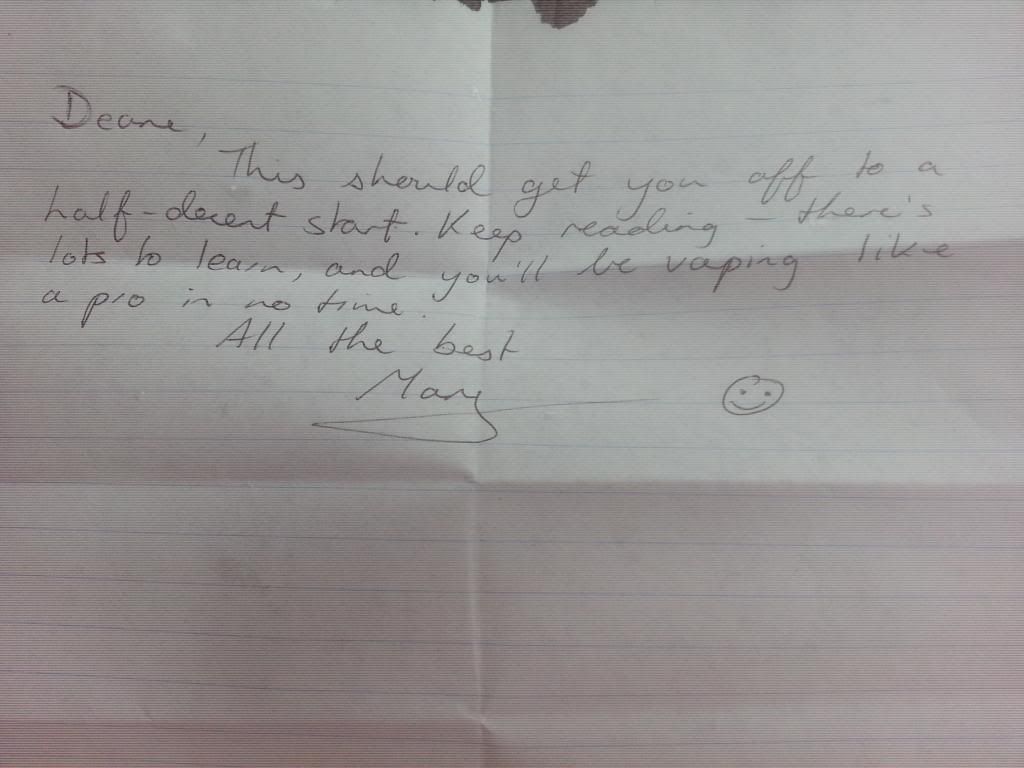 Deane,
This should get you off to a
half-decent start. Keep reading - there's
lots to learn, and you'll be vaping like
a pro in no time.
All the best
Mary